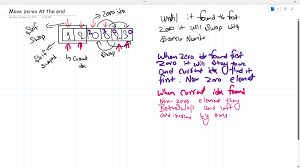 Move zeros At the end
zero idx
Self
1 2 0 0
Swap
Self
Swaped
by Current
idx
until it found the first
zero it will Swap with
Number
When zero idx found first
Zero it will Stay there
and current idx find it
first. Non zero element
When current idx found
Non-zero element they
Both swap and
and increase by one.